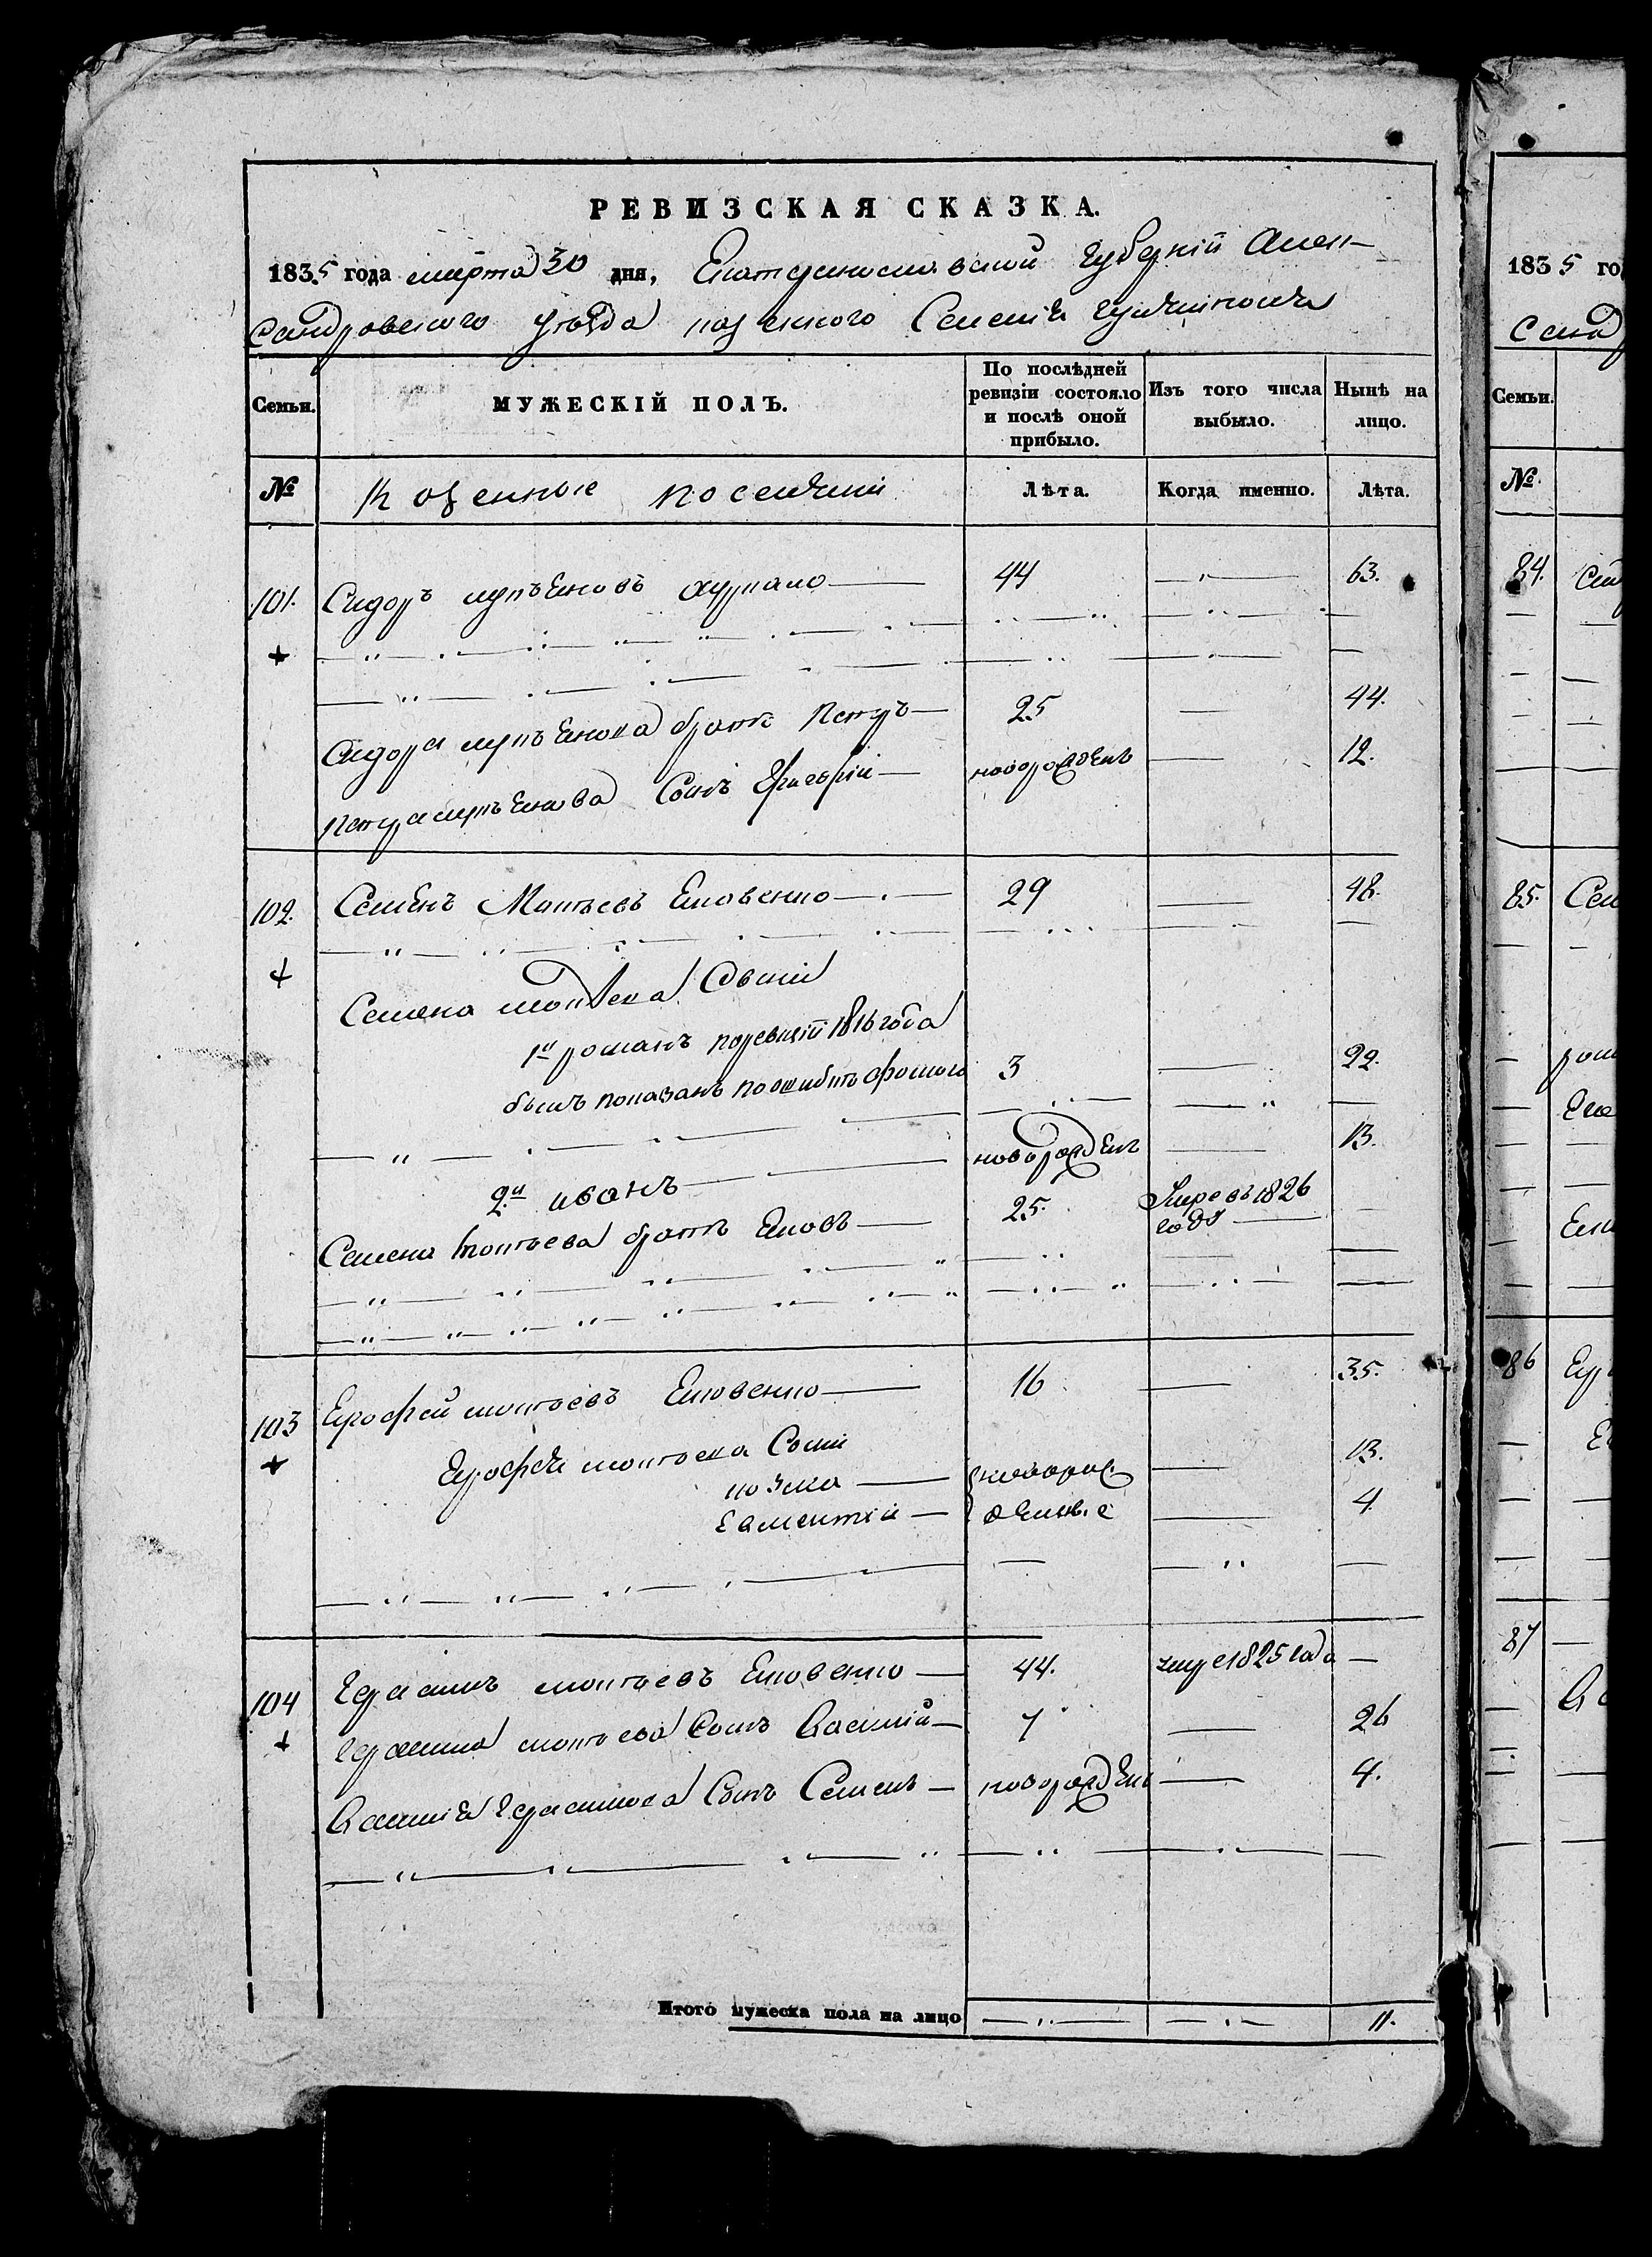 РЕВИЗСКАЯ СКАЗКА.
1835 года марта 30 дня, Екатеринославской губернiи Алек-
сандровскаго уѣзда казенного Селенiя
Семьи.
МУЖЕСКIЙ ПОЛЪ.
По послѣдней ревизiи состояло и послѣ оной прибыло.
Изъ того числа выбыло.
Нынѣ на лицо.
№
Казенные поселяни
Лѣта.
Когда именно.
Лѣта.
101. Сидоръ лупъеновъ 44 63.
Сидора лупъенова братъ петръ 25 44.
петра лупъенова Сынъ Григорiй новорожденъ 12.
102. Семенъ Мотъевъ Яковенко 29 48.
Семена мотъева Сынъи
1й романъ по ревизiи 1816 года
былъ показанъ по ошибкѣ 3 22.
2й иванъ новорожденъ 13.
Семена мотъева братъ Яковъ 25. Умре въ 1826
году
103 Ерофей мотъевъ Яковенко 16 35.
Ерофея мотъева Сыни
козма новорож 13.
Евментiй деные 4
104 Герасимъ мотъевъ Яковенко 44. умре 1825 года
Герасима мотъева Сынъ Василiй 7 26
Василiя Герасимова Сынъ Семенъ новорожденъ 4.
Итого мужеска пола на лицо 11.
1835 го
Семьи.
№.
84.
85. Сем
86
87